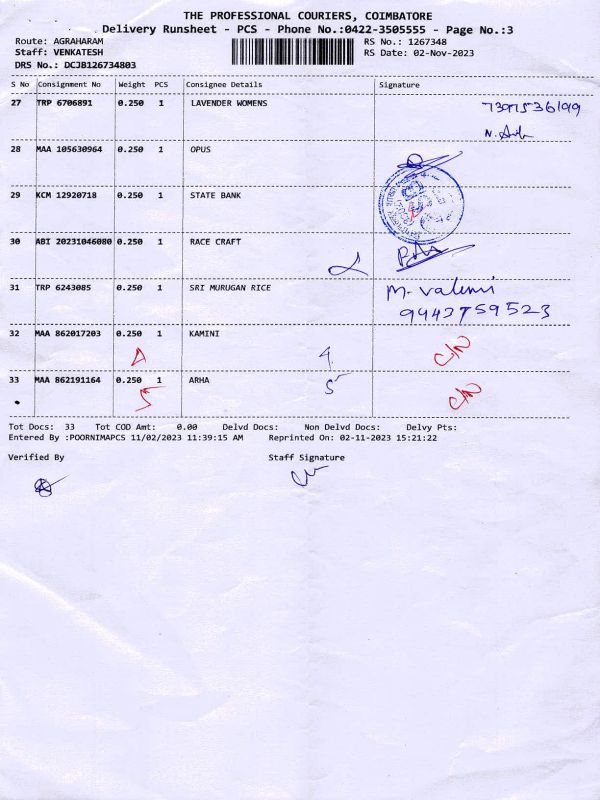 THE PROFESSIONAL COURIERS, COIMBATORE
Delivery Runsheet - PCS - Phone No.:0422-3505555 - Page No.:3
Route: AGRAHARAM RS No.: 1267348
Staff: VENKATESH RS Date: 02-Nov-2023
DRS No.: DCJB126734803
S No Consignment No Weight PCS Consignee Details Signature
27 TRP 6706891 0.250 1 LAVENDER WOMENS
28 MAA 105630964 0.250 1 OPUS
29 KCM 12920718 0.250 1 STATE BANK
30 ABI 20231046080 0.250 1 RACE CRAFT
31 TRP 6243085 0.250 1 SRI MURUGAN RICE M. Valermi
9443759523
32 MAA 862017203 0.250 1 KAMINI C/N
4
33 MAA 862191164 0.250 1 ARHA C/N
5 5
Tot Docs: 33 Tot COD Amt: 0.00 Delvd Docs: Non Delvd Docs: Delvy Pts:
Entered By :POORNIMAPCS 11/02/2023 11:39:15 AM Reprinted On: 02-11-2023 15:21:22
Verified By Staff Signature